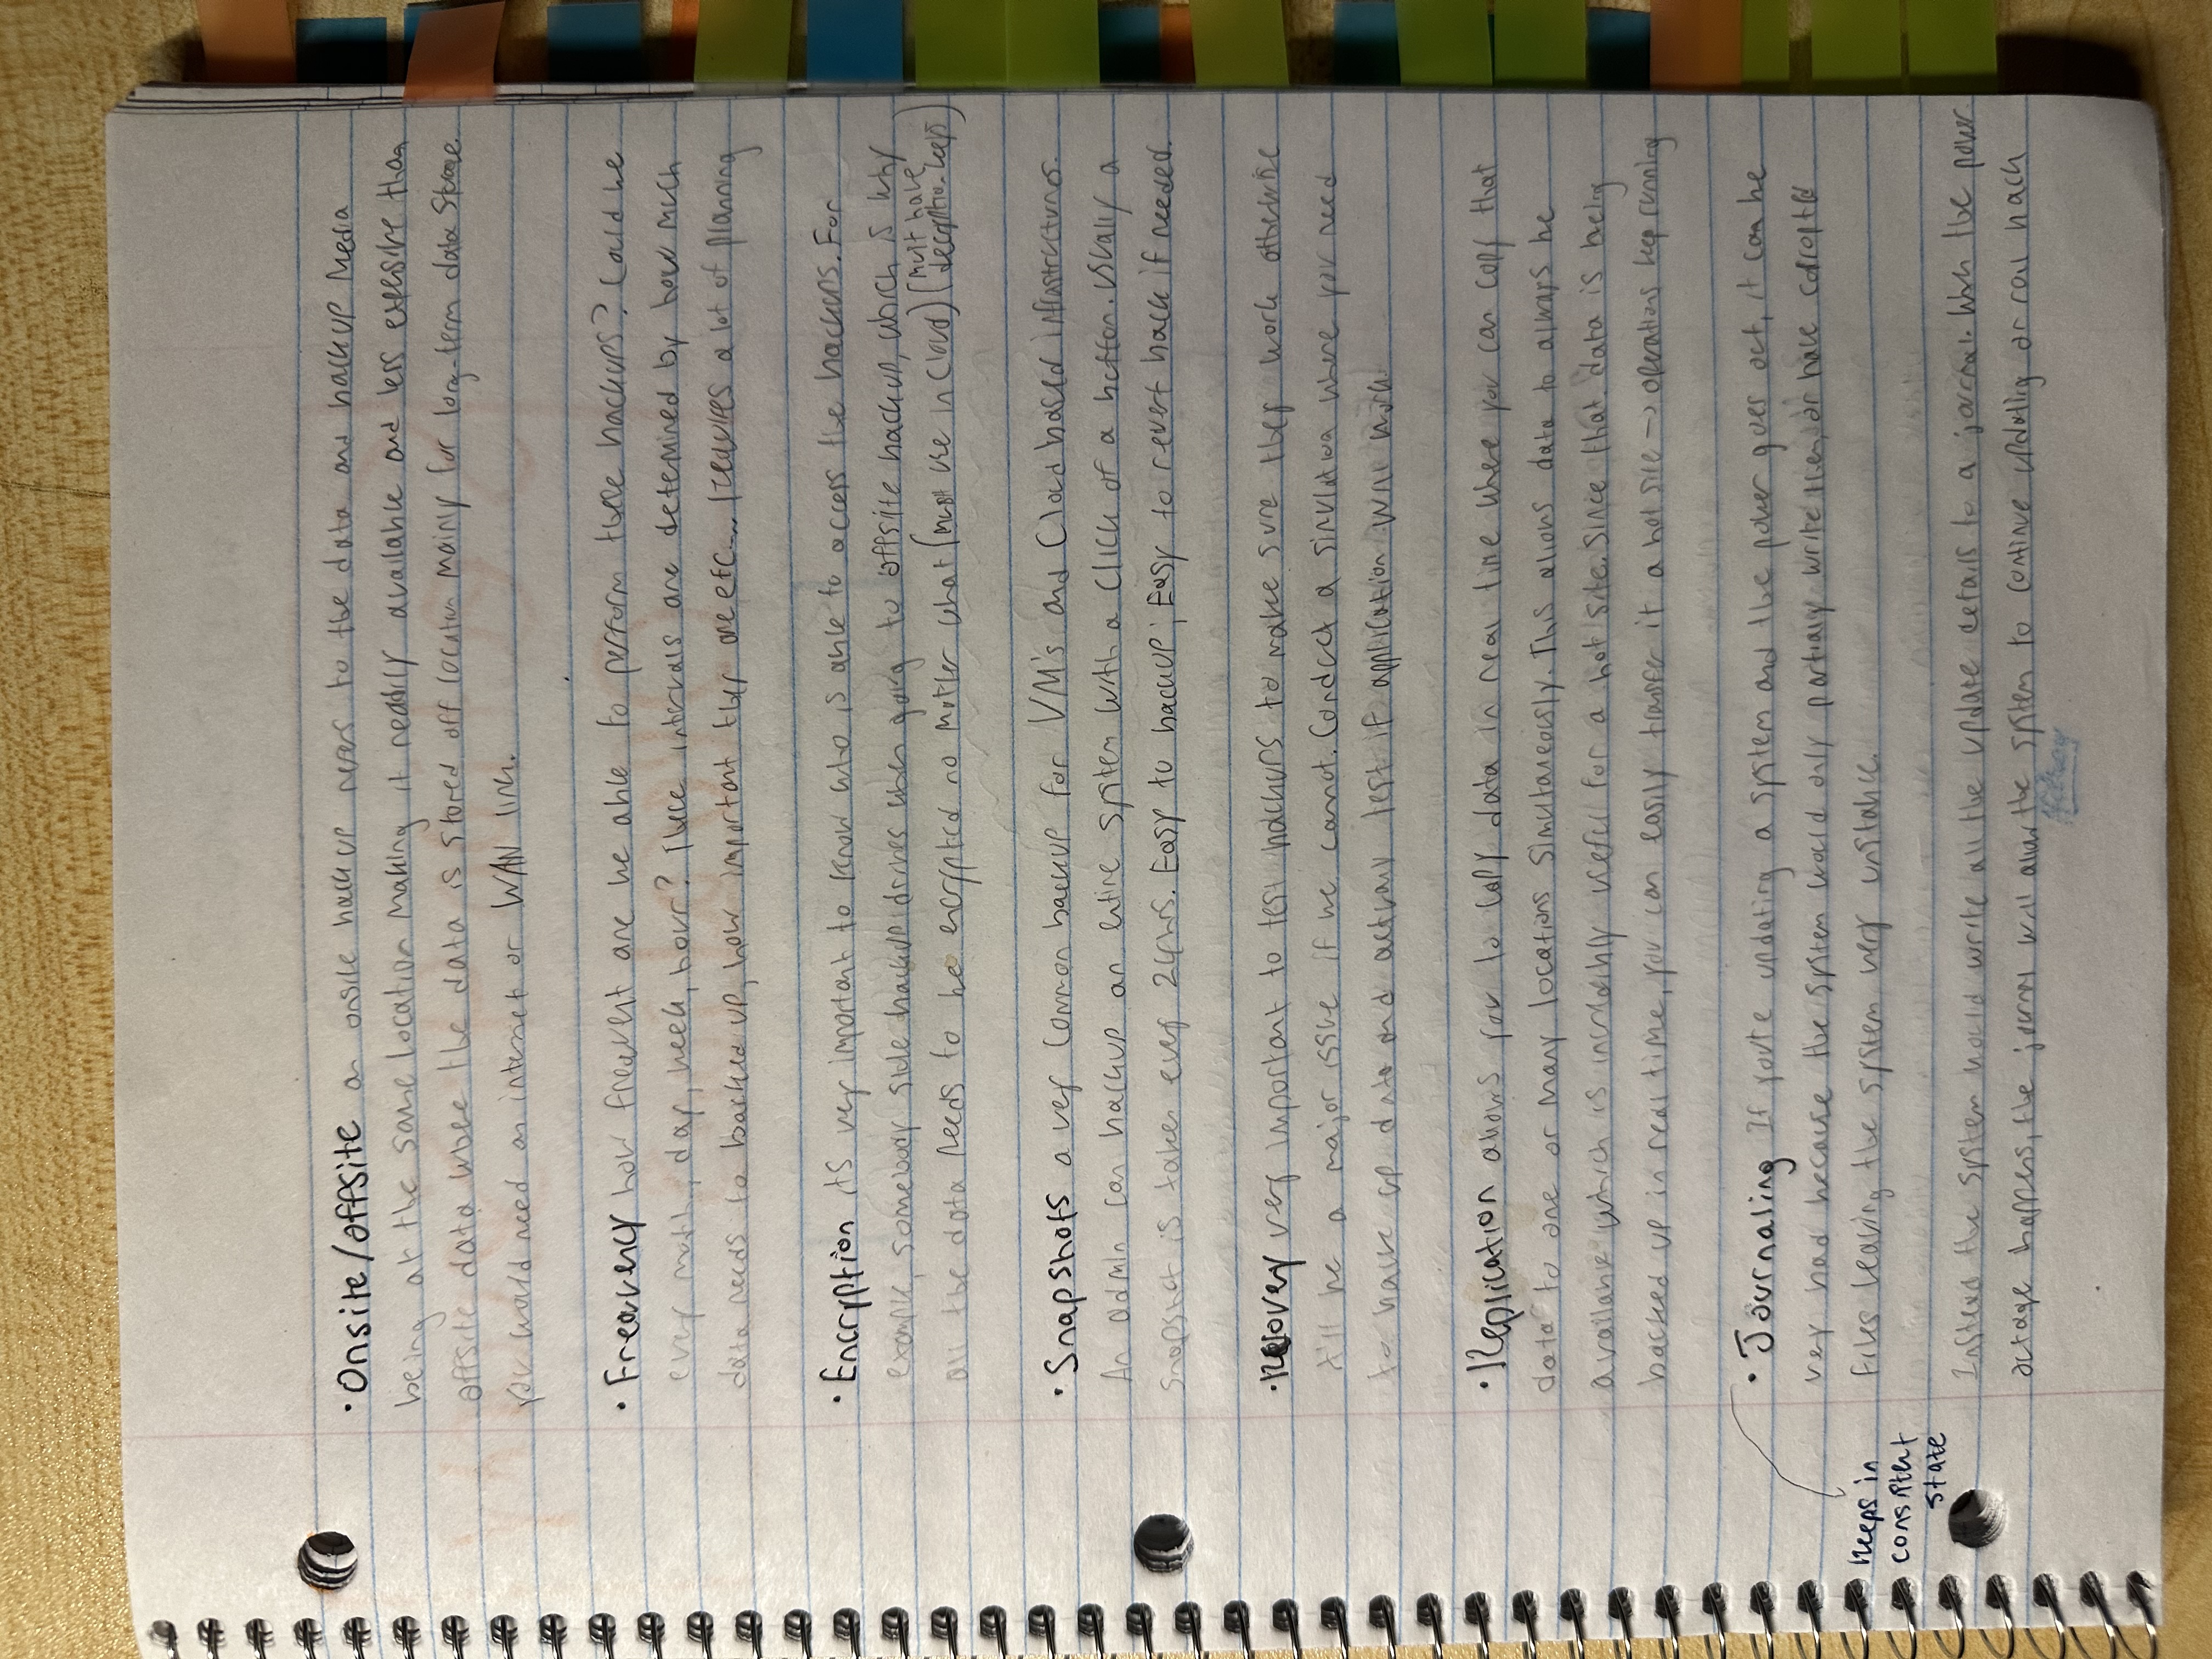 • Onsite/offsite an onsite backup refers to the data and backup Media
being at the same location making it readily available and less expensive than
offsite data where the data is stored off location mainly for long-term data storage.
you would need an internet or WAN link.
• Frequency how frequent are we able to perform these backups? Could be
every month, day, week, hour? These intervals are determined by how much
data needs to backed up, how important they are etc... requires a lot of planning
• Encryption its very important to know who is able to access the backups. For
example, somebody stole backup drives when going to offsite backup, which is why
all the data needs to be encrypted no matter what (must use in Cloud) (must have
decryption keys)
• Snapshots a very common backup for VM's and Cloud based infrastructures.
An admin can backup an entire system with a click of a button. Usually a
snapshot is taken every 24hrs. Easy to backup; Easy to revert back if needed.
• Recovery very important to test backups to make sure they work otherwise
it'll be a major issue if we cannot. Conduct a simulation where you need
to back up data and actually test if application will work.
• Replication allows you to copy data in real time where you can copy that
data to one or many locations simultaneously. This allows data to always be
available which is incredibly useful for a hot site. Since that data is being
backed up in real time, you can easily transfer it a hot site → operations keep running
• Journaling If you're updating a system and the power goes out, it can be
very bad because the system would only partially write them, or have corrupted
files leaving the system very unstable.
Keeps in
consistent
state
Instead the system would write all the update details to a journal. When the power
outage happens, the journal will allow the system to continue updating or roll back